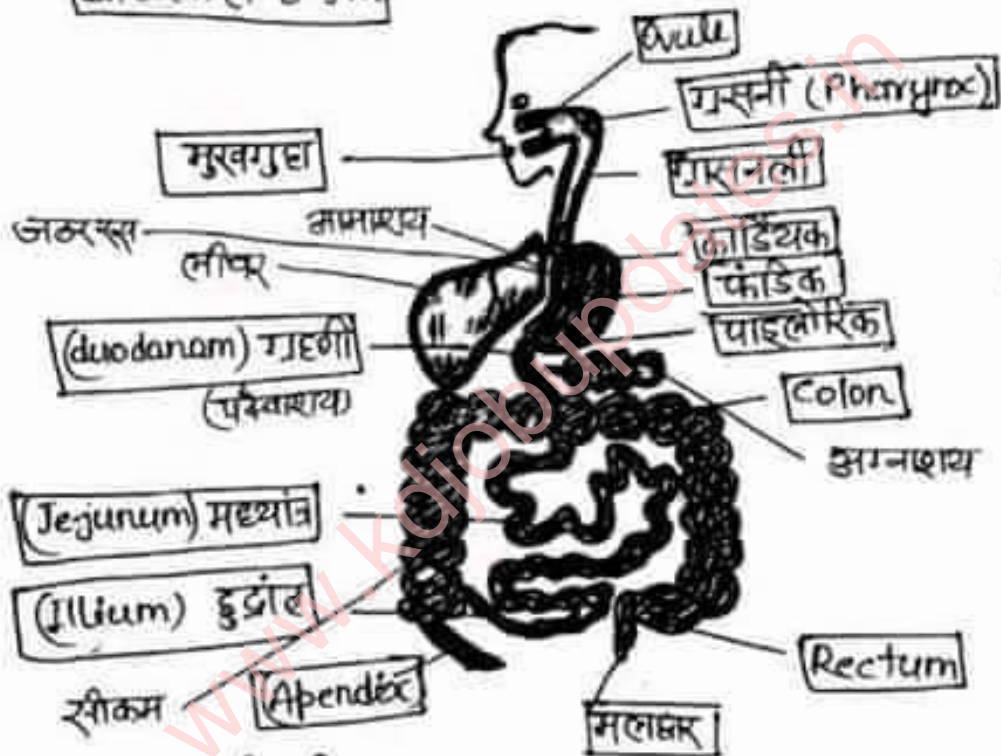 Ovule
ग्रसनी (Pharynx)
मुखगुहा
ग्रासनली
जठररस
आमाशय
लीवर
कार्डियक
फंडिक
पाइलोरिक
(duodanam) ग्रहणी
(पक्वाशय)
Colon
अग्नाशय
(Jejunum) मध्यांत्र
(Illium)
Rectum
सीकम
Apendix
मलद्वार
www.kdjobupdates.in